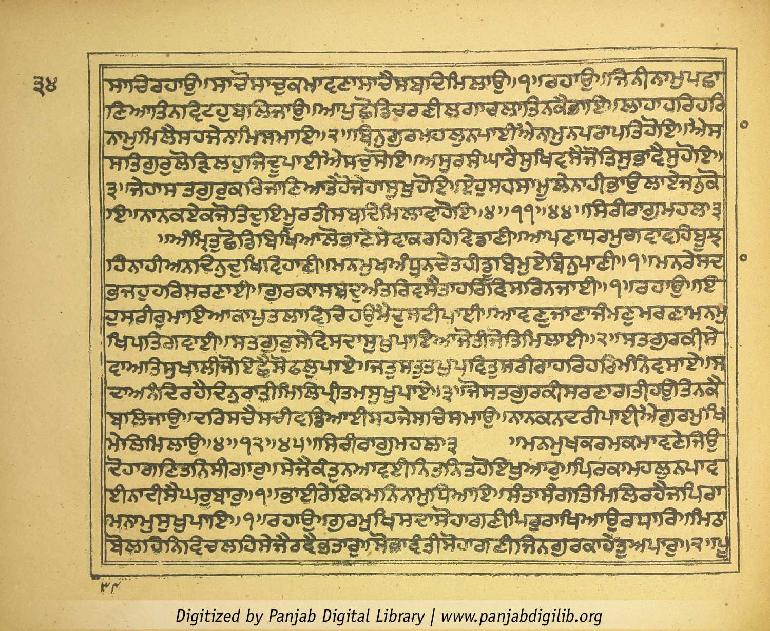 ੩੪
ਸਾਚਿਰਹਾਉ॥ਸਾਚੋਸਾਚੁਕਮਾਵਣਾਸਾਚੈਸਬਦਿਮਿਲਾਉ॥੧॥ਰਹਾਉ॥ਜਿਨੀਨਾਮੁਪਛਾ
ਣਿਆਤਿਨਾਵਿਟਹੁਬਲਿਜਾਉ॥ਆਪੁਛੋਡਿਚਰਣੀਲਗਾਚਲਾਤਿਨਕੈਭਾਇ॥ਲਾਹਾਹਰਿਹਰਿ
ਨਾਮੁਮਿਲੈਸਹਜੇਨਾਮਿਸਮਾਇ॥੨॥ਬਿਨੁਗੁਰਮਹਲੁਨਪਾਈਐਨਾਮੁਨਪਰਾਪਤਿਹੋਇ॥ਐਸਾ
ਸਤਿਗੁਰੁਲੋੜਿਲਹੁਜਿਦੂਪਾਈਐਸਚੁਸੋਇ॥ਅਸੁਰਸੰਘਾਰੈਸੁਖਿਵਸੈਜੋਤਿਸੁਭਾਵੈਸੁਹੋਇ॥
੩॥ਜੇਹਾਸਤਗੁਰੁਕਰਿਜਾਣਿਆਤੇਹੋਜੇਹਾਸੁਖੁਹੋਇ॥ਏਹੁਸਹਸਾਮੂਲੇਨਾਹੀਭਾਉਲਾਏਜਨੁਕੋ
ਇ॥ਨਾਨਕਏਕਜੋਤਿਦੁਇਮੂਰਤੀਸਬਦਿਮਿਲਾਵਾਹੋਇ॥੪॥੧੧॥੪੪॥ਸਿਰੀਰਾਗੁਮਹਲਾ੩
॥ਅੰਮ੍ਰਿਤੁਛੋਡਿਬਿਖਿਆਲੋਭਾਣੇਸੇਵਾਕਰਹਿਵਿਡਾਣੀ॥ਆਪਣਾਧਰਮੁਗਵਾਵਹਿਬੂਝ
ਹਿਨਾਹੀਅਨਦਿਨੁਦੁਖਿਵਿਹਾਣੀ॥ਮਨਮੁਖਅੰਧਨਚੇਤਹੀਡੂਬਿਮੁਏਬਿਨੁਪਾਣੀ॥੧॥ਮਨਰੇਸਦਾ
ਭਜਹੁਹਰਿਸਰਣਾਈ॥ਗੁਰਕਾਸਬਦੁਅੰਤਰਿਵਸੈਤਾਹਰਿਵਿਸਰਿਨਜਾਈ॥੧॥ਰਹਾਉ॥ਇ
ਹੁਸਰੀਰੁਮਾਇਆਕਾਪੁਤਲਾਵਿਚਿਹਉਮੈਦੁਸਟੀਪਾਈ॥ਆਵਣੁਜਾਣਾਜੰਮਣੁਮਰਣਾਮਨਮੁ
ਖਿਪਤਿਗਵਾਈ॥ਸਤਗੁਰੁਸੇਵਿਸਦਾਸੁਖੁਪਾਇਆਜੋਤੀਜੋਤਿਮਿਲਾਈ॥੨॥ਸਤਗੁਰਕੀਸੇ
ਵਾਅਤਿਸੁਖਾਲੀਜੋਇਛੇਸੋਫਲੁਪਾਏ॥ਜਤੁਸਤੁਤਪੁਪਵਿਤੁਸਰੀਰਾਹਰਿਹਰਿਮੰਨਿਵਸਾਏ॥ਸ
ਦਾਅਨੰਦਿਰਹੈਦਿਨੁਰਾਤੀਮਿਲਿਪ੍ਰੀਤਮਸੁਖੁਪਾਏ॥੩॥ਜੋਸਤਗੁਰਕੀਸਰਣਾਗਤੀਹਉਤਿਨਕੈ
ਬਲਿਜਾਉ॥ਦਰਿਸਚੈਸਚੀਵਡਿਆਈਸਹਜੇਸਚਿਸਮਾਉ॥ਨਾਨਕਨਦਰੀਪਾਈਐਗੁਰਮੁਖਿ
ਮੇਲਿਮਿਲਾਉ॥੪॥੧੨॥੪੫॥ਸਿਰੀਰਾਗੁਮਹਲਾ੩ ॥ਮਨਮੁਖਕਰਮਕਮਾਵਣੇਜਿਉ
ਦੋਹਾਗਣਿਤਨਿਸੀਗਾਰੁ॥ਸੇਜੈਕੰਤੁਨਆਵਈਨਿਤਨਿਤਹੋਇਖੁਆਰੁ॥ਪਿਰਕਾਮਹਲੁਨਪਾਵ
ਈਨਾਦੀਸੈਘਰੁਬਾਰੁ॥੧॥ਭਾਈਰੇਇਕਮਨਿਨਾਮੁਧਿਆਇ॥ਸੰਤਾਸੰਗਤਿਮਿਲਿਰਹੈਜਪਿਰਾ
ਮਨਾਮੁਸੁਖੁਪਾਇ॥੧॥ਰਹਾਉ॥ਗੁਰਮੁਖਿਸਦਾਸੋਹਾਗਣੀਪਿਰੁਰਾਖਿਆਉਰਧਾਰਿ॥ਮਿਠਾ
ਬੋਲਹਿਨਿਵਿਚਲਹਿਸੇਜੈਰਵੈਭਤਾਰੁ॥ਸੋਭਾਵੰਤੀਸੋਹਾਗਣੀਜਿਨਗੁਰਕਾਹੇਤੁਅਪਾਰੁ॥੨॥ਪੂ
Digitized by Panjab Digital Library | www.panjabdigilib.org